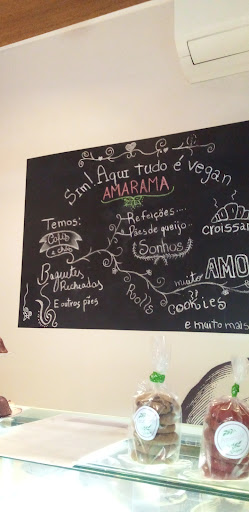 Sim! Aqui tudo é vegan
AMARAMA
Temos:
Cafés
e chás
Baguetes
Recheadas
E outros pães
Refeições...
Pães de queijo..
Sonhos
Rolls
cookies
croissan
muito AMO
e muito mais